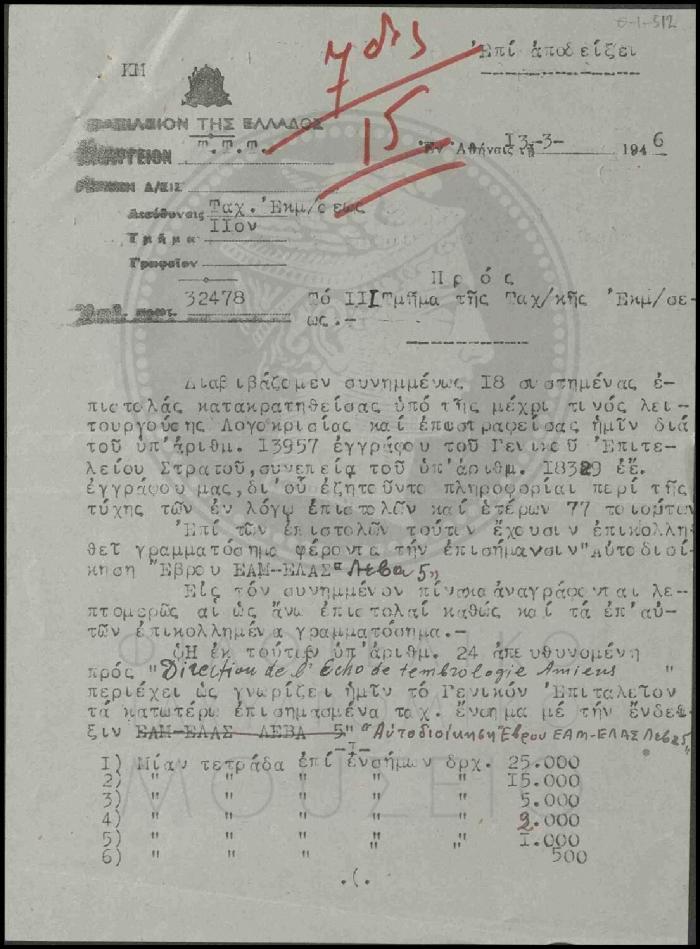 6-1-512
7 dis
15
Ἐπί ἀποδείξει
ΚΜ
ΒΑΣΙΛΕΙΟΝ ΤΗΣ ΕΛΛΑΔΟΣ
Τ.Τ.Τ.
Ἐν Ἀθήναις τῇ 13-3- 1946
Διεύθυνσις Ταχ. Ἐκμ/σεως
Τμῆμα ΙΙον
Γραφεῖον
Πρός
32478
Τό ΙΙΙ Τμῆμα τῆς Ταχ/κῆς Ἐκμ/σε-
ως.-
Διαβιβάζομεν συνημμένως 18 συστημένας ἐ-
πιστολάς κατακρατηθείσας ὑπό τῆς μέχρι τινός λει-
τουργούσης Λογοκρισίας καί ἐπιστραφείσας ἡμῖν διά
τοῦ ὑπ'ἀριθμ. 13957 ἐγγράφου τοῦ Γενικοῦ Ἐπιτε-
λείου Στρατοῦ,συνεπείᾳ τοῦ ὑπ'ἀριθμ. 18329 ἐ.ἔ.
ἐγγράφου μας,δι'οὗ ἐζητοῦντο πληροφορίαι περί τῆς
τύχης τῶν ἐν λόγῳ ἐπιστολῶν καί ἑτέρων 77 τοιούτων
Ἐπί τῶν ἐπιστολῶν τούτων ἔχουσιν ἐπικολλη-
θεῖ γραμματόσημα φέροντα τήν ἐπισήμανσιν "Αὐτοδιοί-
κηση Ἔβρου ΕΑΜ-ΕΛΑΣ" Λέβα 5"
Εἰς τόν συνημμένον πίνακα ἀναγράφονται λε-
πτομερῶς αἱ ὡς ἄνω ἐπιστολαί καθώς καί τά ἐπ'αὐ-
τῶν ἐπικολλημένα γραμματόσημα.-
Ἡ ἐκ τούτων ὑπ'ἀριθμ. 24 ἀπευθυνομένη
πρός "Direction de l'Echo de tembrologie Amiens "
περιέχει ὡς γνωρίζει ἡμῖν τό Γενικόν Ἐπιταλεῖον
τά κατωτέρω ἐπισημασμένα ταχ. ἔνσημα μέ τήν ἔνδει-
ξιν ΕΑΜ-ΕΛΑΣ ΛΕΒΑ 5" "Αὐτοδιοίκηση Ἔβρου ΕΑΜ-ΕΛΑΣ Λεβα 5"
1) Μίαν τετράδα ἐπί ἐνσήμων δρχ. 25.000
2) " " " " " 15.000
3) " " " " " 5.000
4) " " " " " 2.000
5) " " " " " 1.000
6) " " " " " 500
./.
ΜΟΥΣΕΙΟ